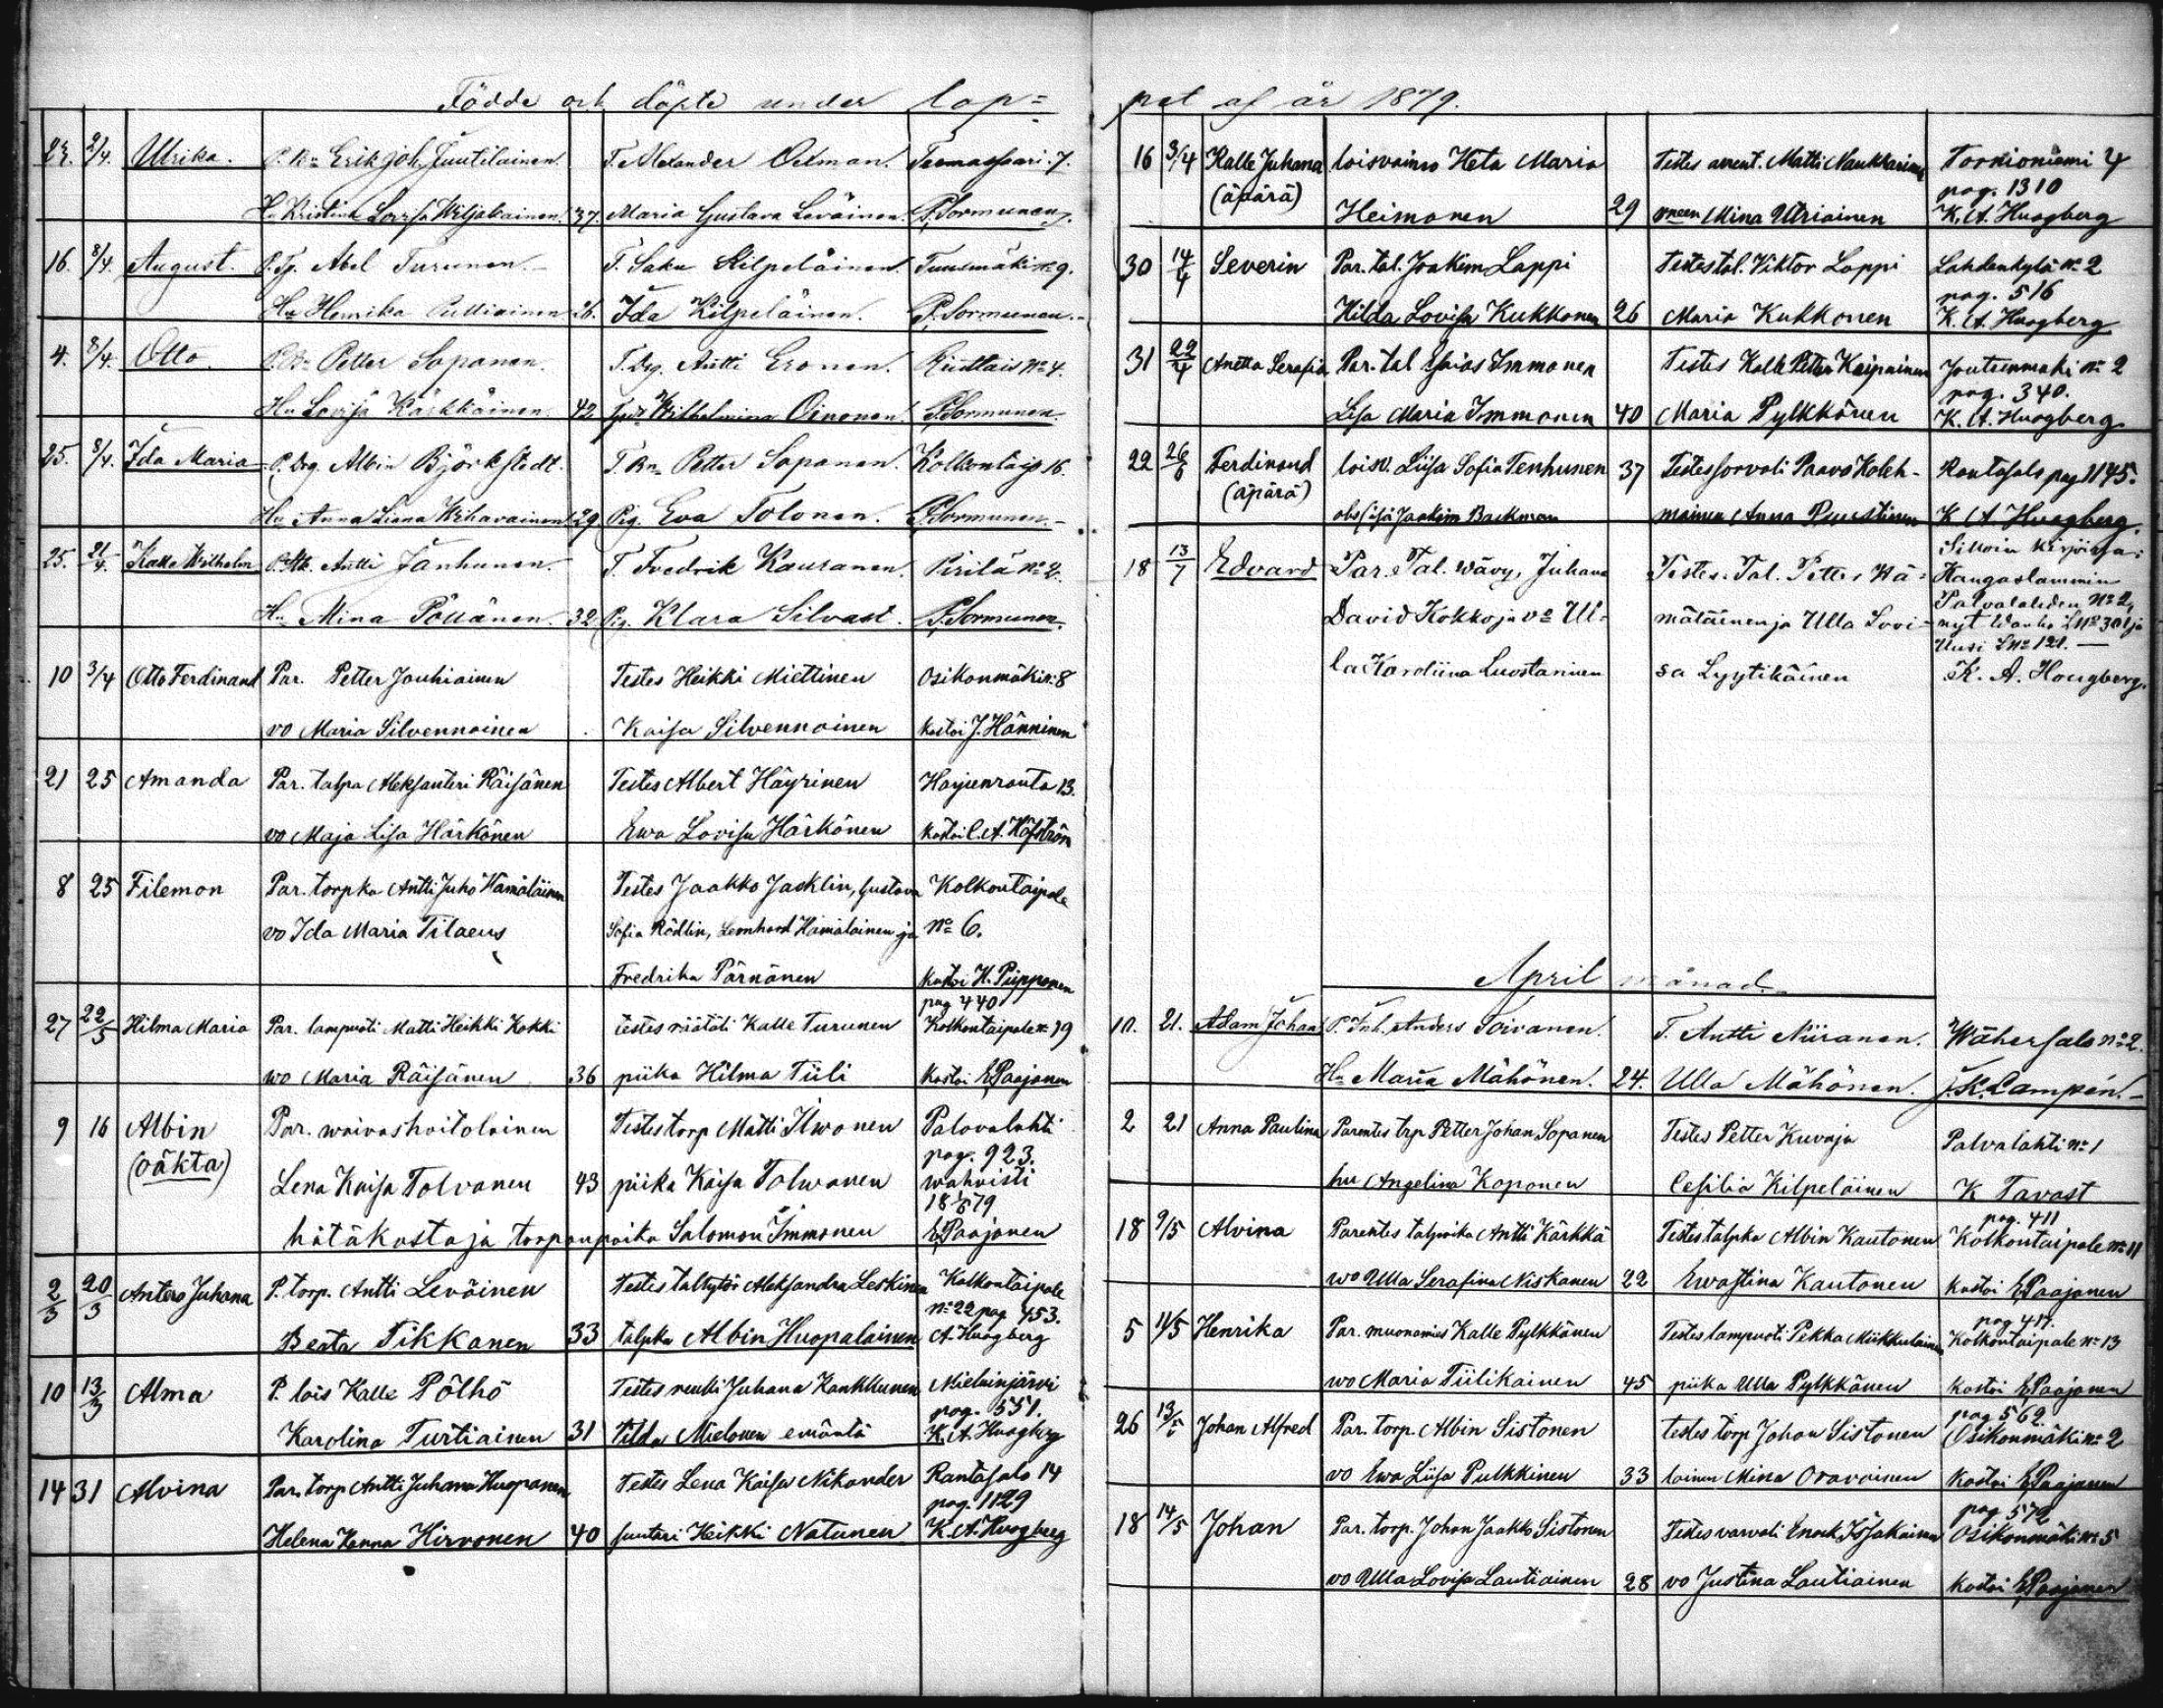 Födde och döpte under lop=
23. 2/4. Ulrika. P. Bn Erik Joh. Tuutilainen. T. Alexander Oelman. Teemassaari. 7.
Hu Kristina Lovisa Wiljakainen. 37. Maria Gustava Leväinen. P. Sormunen.
16. 8/4. August. P. Tp. Abel Turunen. T. Saku Kilpeläinen. Tuusmäki No 9.
Hu Henrika Pulliainen 26. Ida Kilpeläinen. P. Sormunen.
4. 8/4. Otto. P. Bn Petter Sopanen. T. Drg. Antti Eronen. No 4.
Hu Lovisa Kärkkäinen. 42 Wilhelmina Oinonen. P. Sormunen.
25. 8/4. Ida Maria P. Drg. Albin Björkstedt. T. Bn. Petter Sopanen. Kolkontaip 16.
Hu Anna Liena Wihavainen 29 Pig. Eva Tolonen. P. Sormunen.
25. 21/4. Kalle Wilhelm Antti Janhunen. T. Fredrik Kauranen. Pirilä No 2.
Hu Mina Pöllänen. 32 Pig. Klara Silvast. P. Sormunen.
10 3/4 Otto Ferdinand Par. Petter Jouhiainen Testes Heikki Miettinen Osikonmäki n:8
vo Maria Silvennoinen Kaisa Silvennoinen kastoi J. Hänninen
21 25 Amanda Par. talpa Aleksanteri Räisänen Testes Albert Häyrinen Harjunranta 13.
vo Maja Lisa Härkönen Ewa Lovisa Härkönen kastoi C. A. Höfström
8 25 Filemon Par. torpka Antti Juho Hämäläinen Testes Jaakko Jacklin, Gustava Kolkontaipale
vo Ida Maria Tilaeus Sofia Rödlin, Leonhard Hämäläinen ja No 6.
Fredrika Pärnänen kastoi H. Piipponen
pag 440
27 22/5 Hilma Maria Par. lampuoti Matti Heikki Kokki testes räätäli Kalle Turunen Kolkontaipale n: 79
wo Maria Räisänen 36 piika Hilma Tiili kastoi E. Paajanen
9 16 Albin Par. waivashoitolainen Testes torp Matti Ilwonen Palovalahti
(oäkta) pag. 923.
Lena Kaisa Tolvanen 43 piika Kaisa Tolwanen wahvisti
18 1/6 79
hätäkastaja torpanpoika Salomon Immonen E. Paajanen
2/3 20/3 Antero Juhana P. torp. Antti Leväinen testes taltytär Aleksandra Leskinen Kolkontaipale
No 22 pag 453.
Beata Tikkanen 33 talpka Albin Huopalainen A. Huogberg
10 13/3 Alma P. lois Kalle Pölhö Testes renki Juhana Kankkunen Nieluinjärvi
pag. 551.
Karolina Turtiainen 31 Tilda Mielonen emäntä K. A. Huogberg
14 31 Alvina Par. torp Antti Juhana Huopanen Testes Lena Kaisa Nikander Rantasalo 14
pag. 1129
Helena Hanna Hirvonen 40 suutari Heikki Natunen K. A. Huogberg
pet af år 1879.
16 3/4 Kalle Juhana loisvaimo Heta Maria Testes arrent. Matti Naukkarinen Torkioniemi 4
(äpärä) pag. 1310
Heimonen 29 Mina Utriainen K. A. Huogberg
30 14/4 Severin Par. tal. Joakim Lappi Testes tal. Viktor Lappi Lahdenkylä No 2
pag. 516
Hilda Lovisa Kukkonen 26 Maria Kukkonen K. A. Huogberg
31 22/4 Anetta Serafia Par. tal Esaias Immonen Testes Kalle Petter Kaipainen Joutsenmäki No 2
pag. 340.
Lisa Maria Immonen 40 Maria Pylkkänen K. A. Huogberg
22 26/6 Ferdinand loisv. Liisa Sofia Tenhunen 37 Testes sorvali Paavo Koleh- Rantasalo pag 1145.
(äpärä) obs! isä Joakim Backman mainen Anna Puustinen K. A. Huogberg
18 13/7 Edvard Par. Tal. wävy, Juhana Testes. Tal. Petter Hä= Silloin kirjoissa:
Kangaslammin
David Kokko ja vo Ul= mäläinen ja Ulla Lovi= Palvalahden No 2,
nyt Wanha LNo 30 ja
Uusi LNo 121.
la Karoliina Luostarinen sa Lyytikäinen K. A. Hougberg.
April månad.
10. 21. Adam Johan P. Inh. Anders Toivanen. T. Antti Niiranen. Wähersalo No 2.
Hu Maria Mähönen. 24. Ulla Mähönen. J. K. Lampén.
2 21 Anna Paulina Parentes trp Petter Johan Sopanen Testes Petter Kuvaja Palvalahti No 1
hu Angelina Koponen Cesilia Kilpeläinen K Tavast
pag. 411
18 9/5 Alvina Parentes talpoika Antti Kärkkä Testes talpka Albin Kautonen Kolkontaipale No 11
wo Ulla Serafina Niskanen 22 Ewastina Kautonen kastoi E. Paajanen
pag 417.
5 11/5 Henrika Par. muonamies Kalle Pylkkänen Testes lampuoti Pekka Miikkulainen Kolkontaipale No 13
wo Maria Tiilikainen 45 piika Ulla Pylkkänen kastoi E. Paajanen
pag 562
26 13/5 Johan Alfred Par. torp. Albin Sistonen testes torp Johan Sistonen Osikonmäki No 2
vo Ewa Liisa Pulkkinen 33 loinen Mina Oravainen kastoi E. Paajanen
pag 572
18 14/5 Johan Par. torp. Johan Jaakko Sistonen Testes varvali Enok Issakainen Osikonmäki No 5
vo Ulla Lovisa Lautiainen 28 vo Justina Lautiainen kastoi E. Paajanen